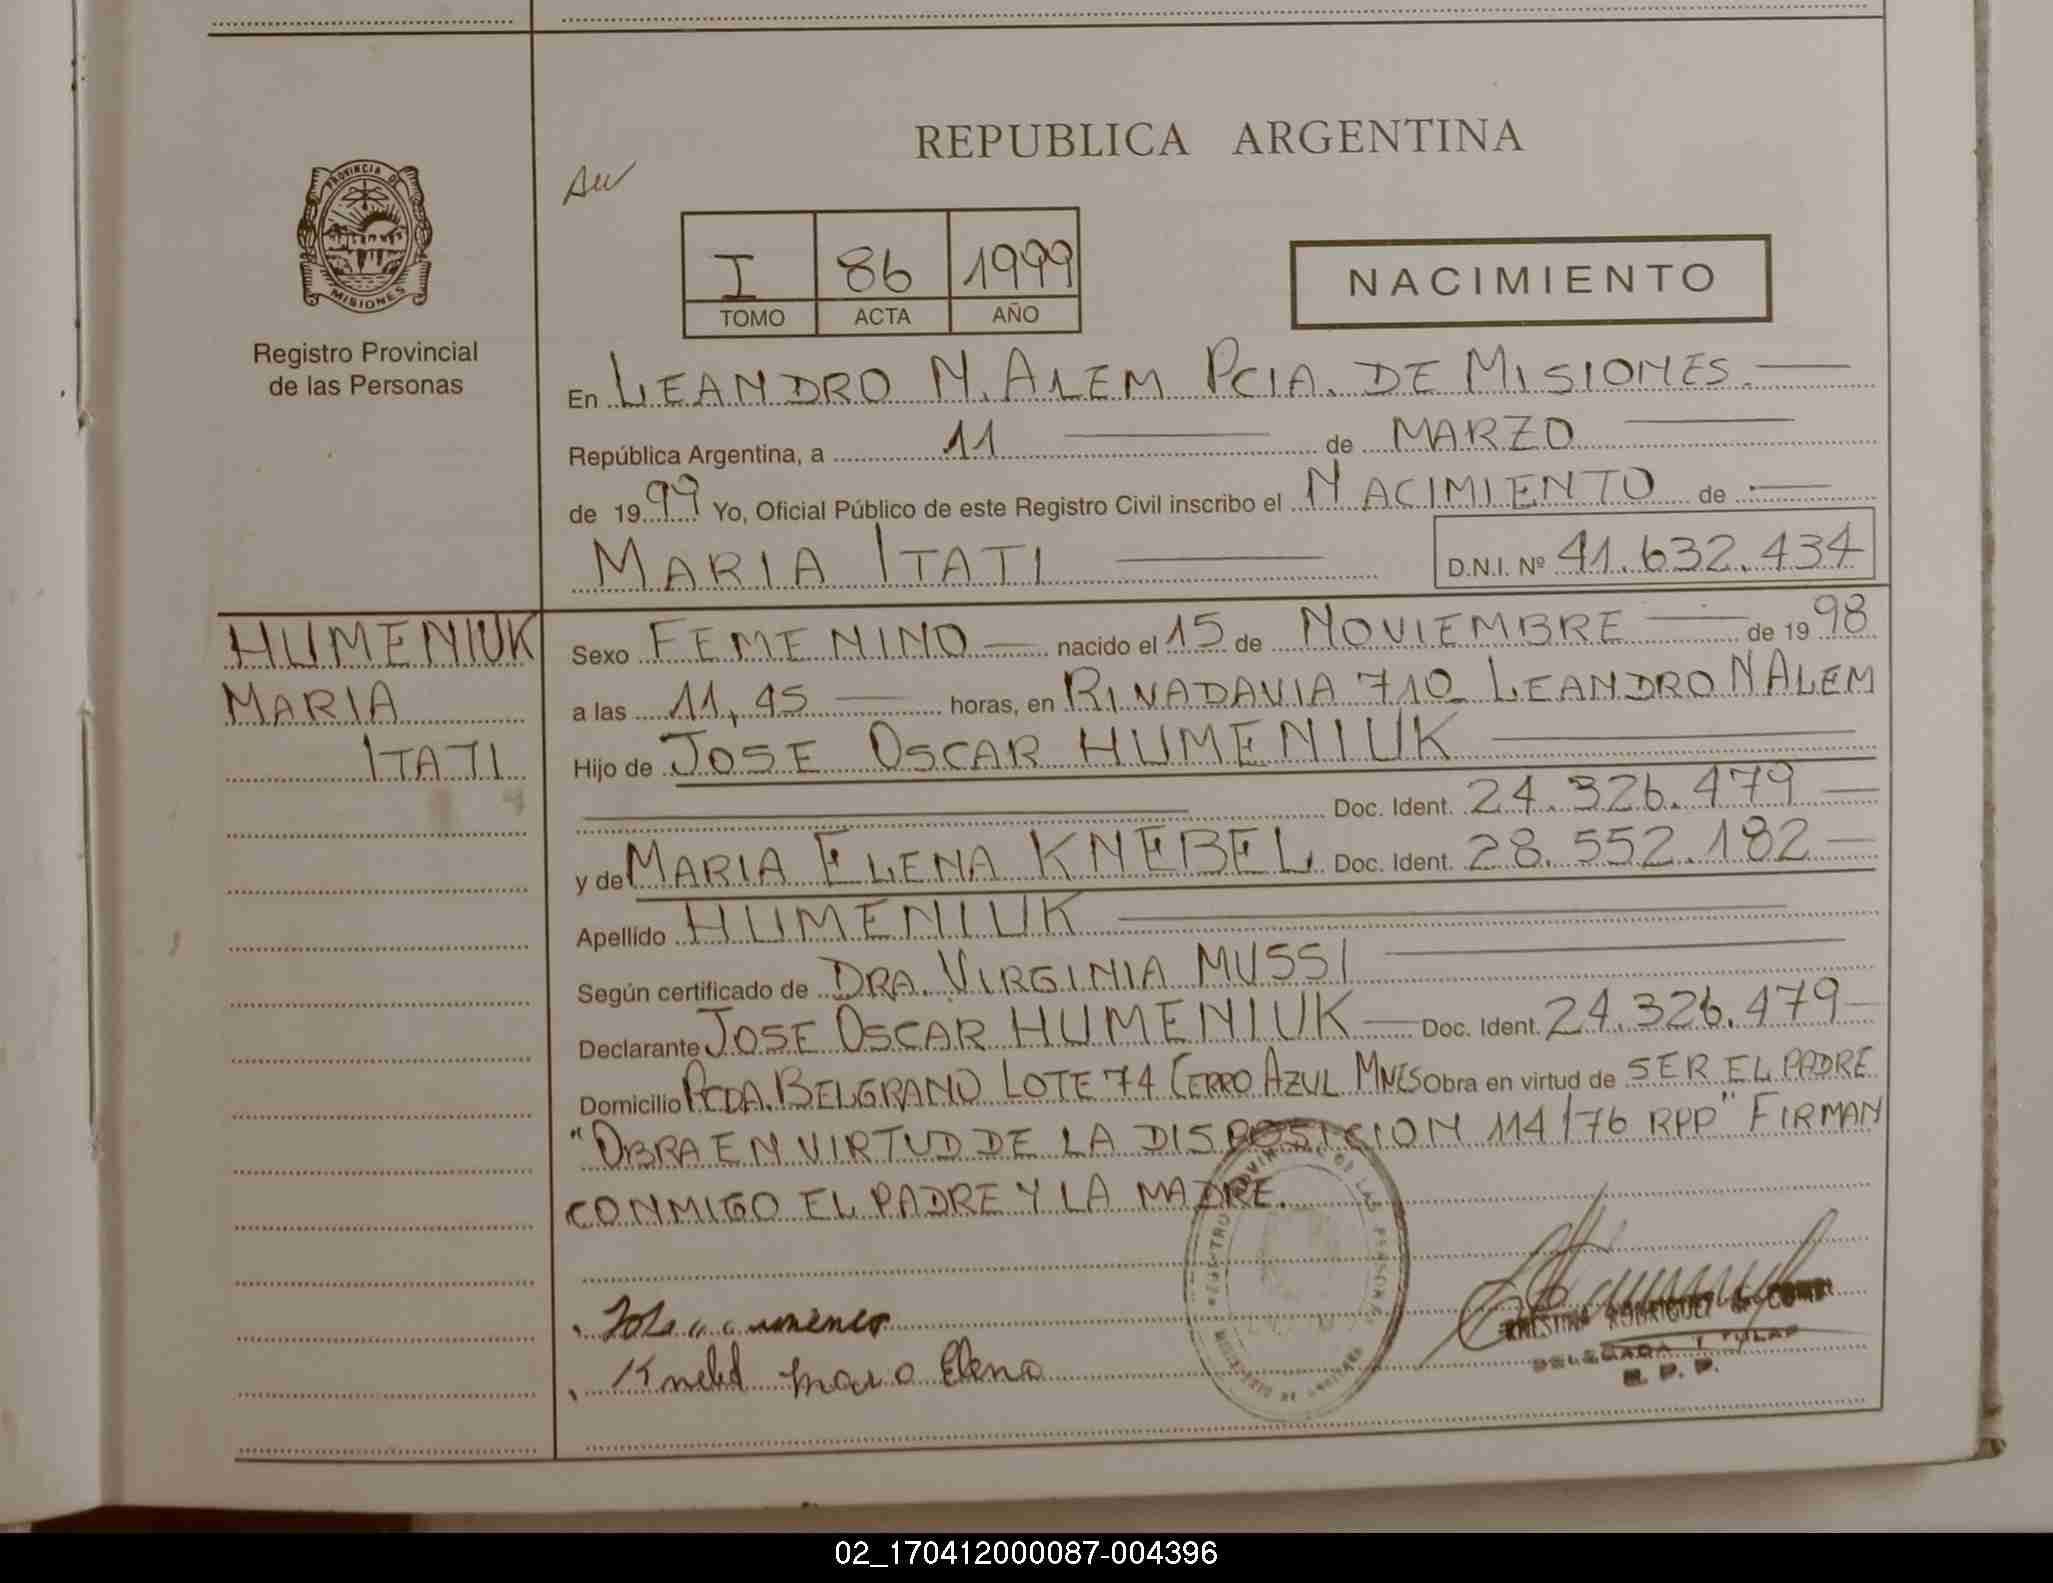 REPUBLICA ARGENTINA
PROVINCIA DE
MISIONES
Registro Provincial
de las Personas
I 86 1999
TOMO ACTA AÑO
NACIMIENTO
En LEANDRO N. ALEM PCIA. DE MISIONES.
República Argentina, a 11 de MARZO
de 1999 Yo, Oficial Público de este Registro Civil inscribo el NACIMIENTO de
MARIA ITATI D.N.I. Nº 41.632.434
HUMENIUK
MARIA
ITATI
Sexo FEMENINO nacido el 15 de NOVIEMBRE de 1998
a las 11,45 horas, en RIVADAVIA 710 LEANDRO N ALEM
Hijo de JOSE OSCAR HUMENIUK
Doc. Ident. 24.326.479
y de MARIA ELENA KNEBEL Doc. Ident. 28.552.182
Apellido HUMENIUK
Según certificado de DRA. VIRGINIA MUSSI
Declarante JOSE OSCAR HUMENIUK Doc. Ident. 24.326.479
Domicilio PCDA. BELGRANO LOTE 74 CERRO AZUL MNES Obra en virtud de SER EL PADRE
"OBRA EN VIRTUD DE LA DISPOSICION 114/76 RPP" FIRMAN
CONMIGO EL PADRE Y LA MADRE.
RODRIGUEZ
DELEGADA TITULAR
R. P. P.
Elena
02_170412000087-004396